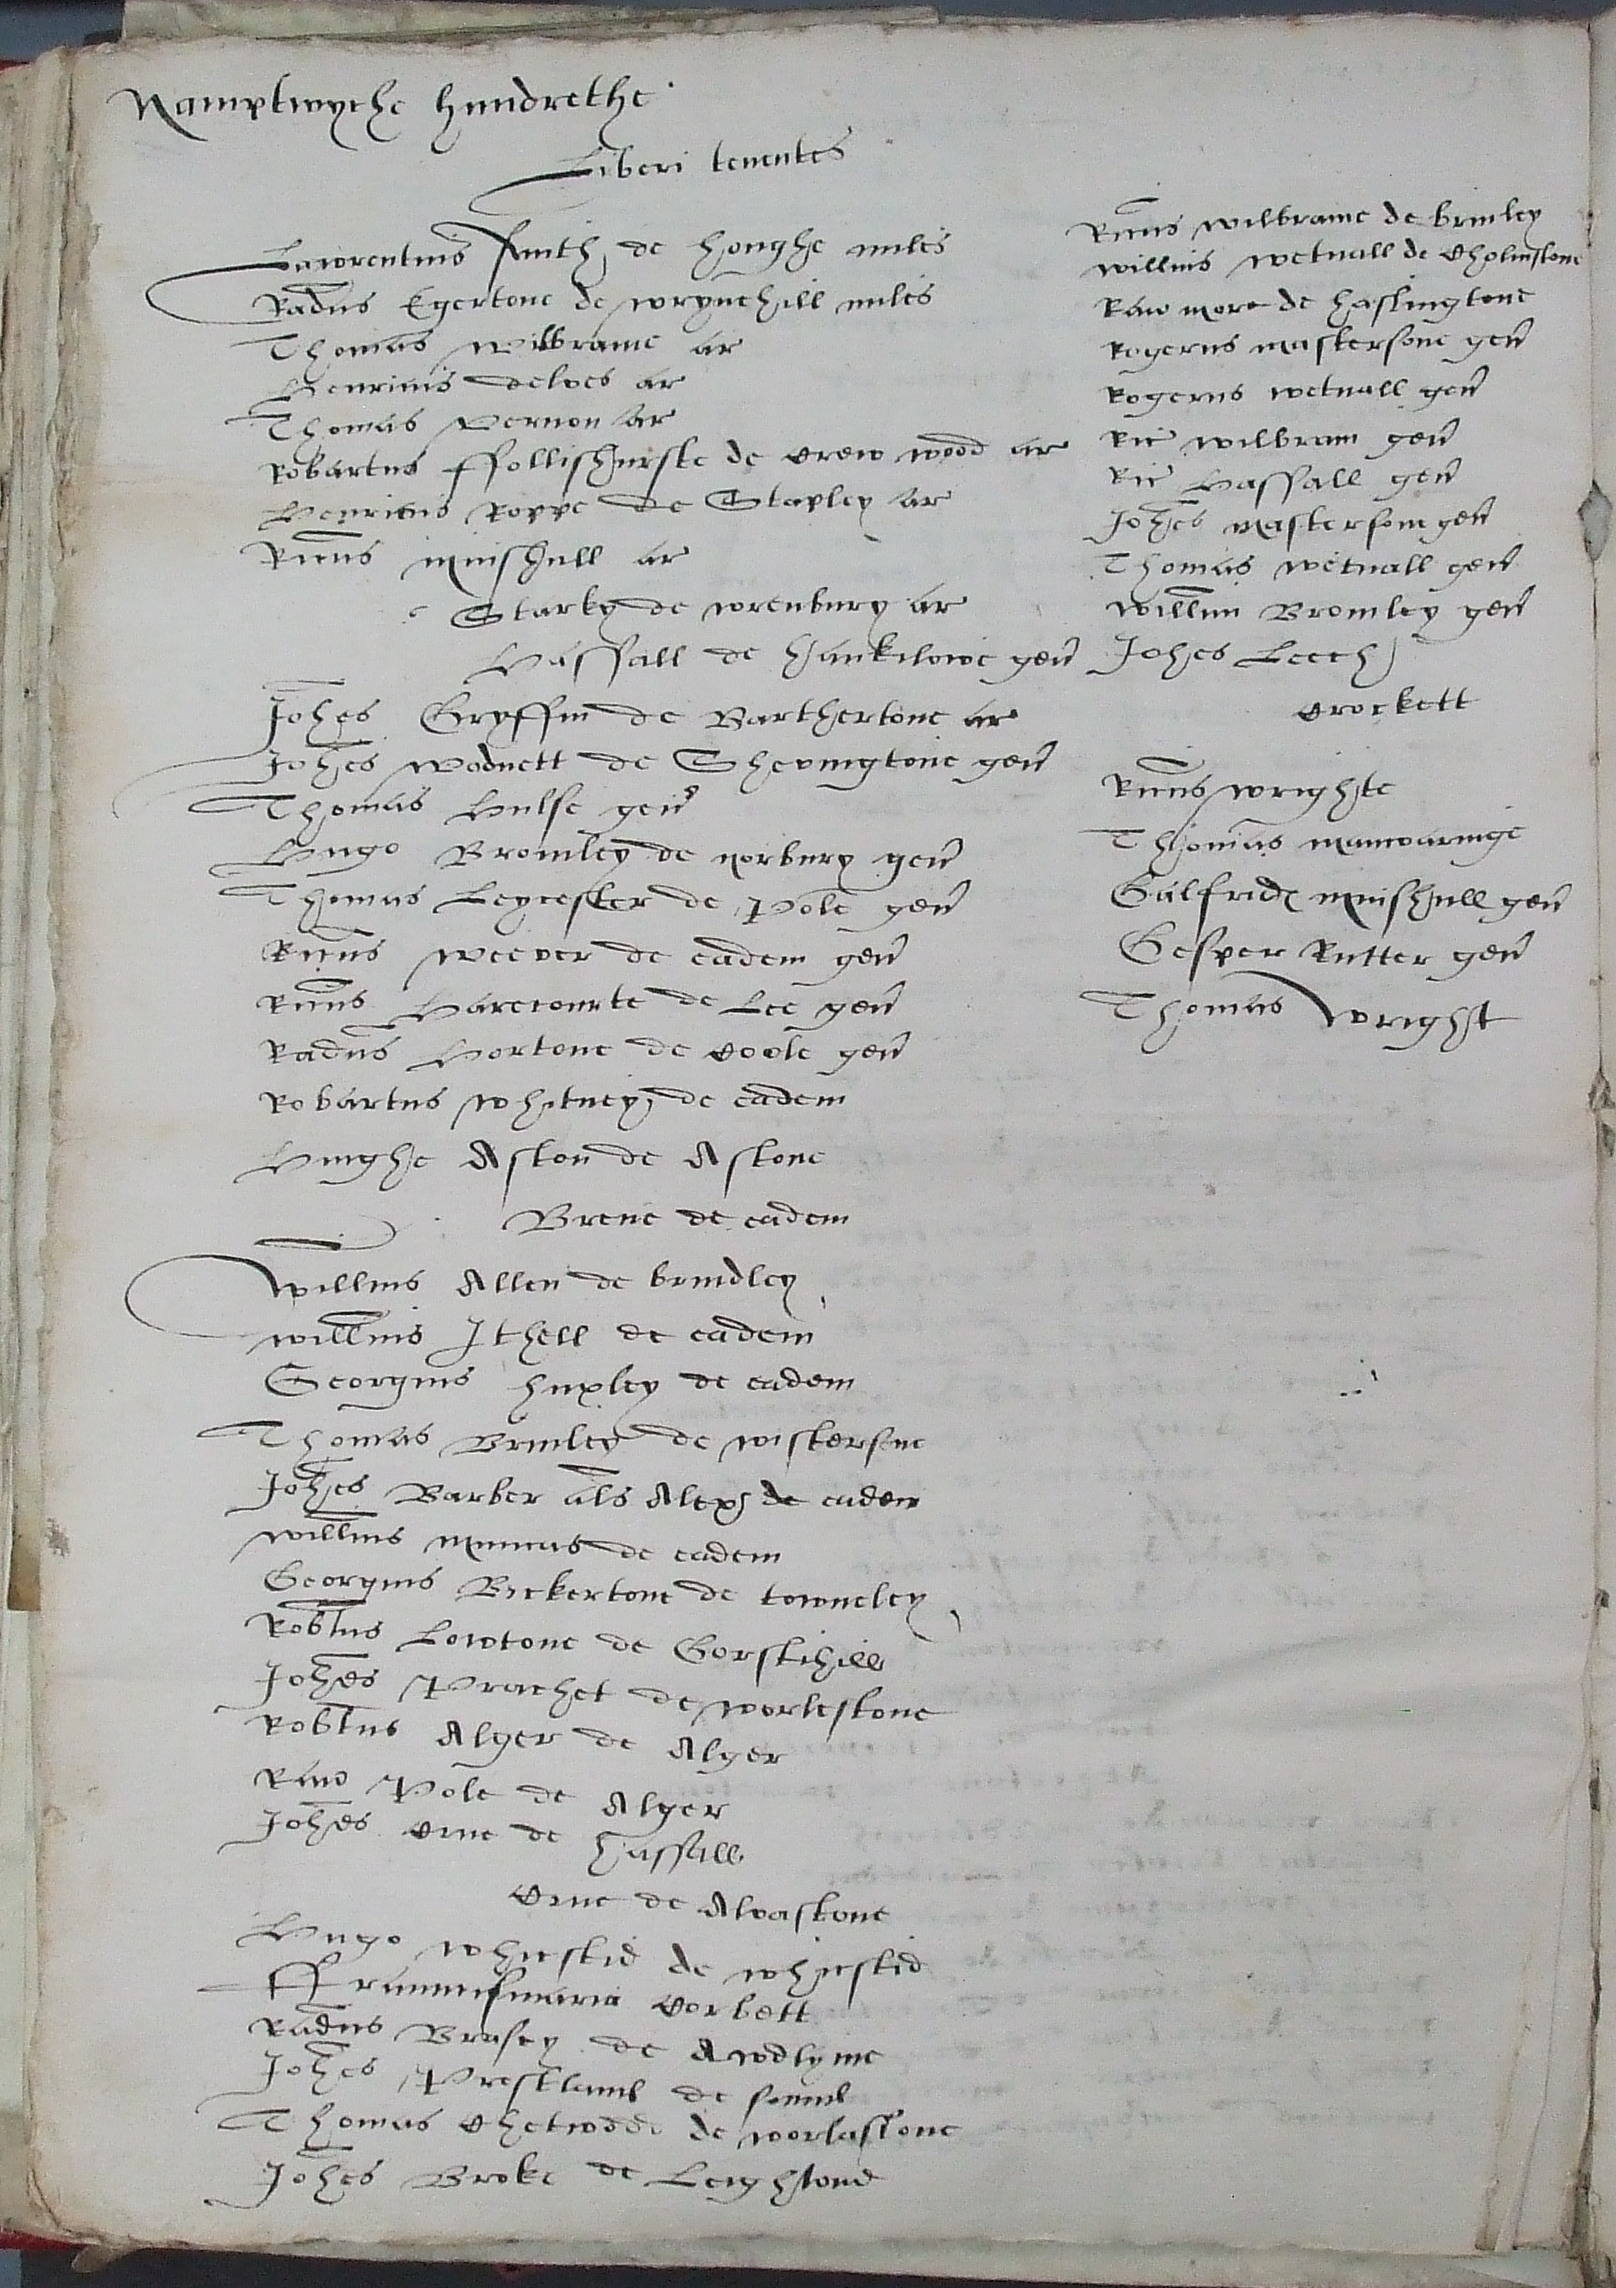 Namptwyche hundrethe
Liberi tenentes
Lawrentius Smith de houghe miles
Radus Egertone de wrynehill miles
Thomas Wilbrame ar
Henricus delves ar
Thomas Vernon ar
Robartus ffollishurste de Crew wood ar
Henricus Roppe de Stapley ar
Ricus Minshull ar
Starky de wrenbury ar
Hassall de Hankilowe gen
Johes Gryffin de Barthertone ar
Johes wodnett de Shevingtone gen
Thomas Hulse gen
Hugo Bromley de norbury gen
Thomas Leycester de Pole gen
Ricus weever de eadem gen
Ricus Harecourte de Lee gen
Radus Hortone de Coole gen
Robartus Whitney de eadem
Hughe Aston de Astone
Brene de eadem
Willms Allen de brindley
willms Ithell de eadem
Georgius huxley de eadem
Thomas Brinley de wistersone
Johes Barber als Alex de eadem
willms Minnas de eadem
Georgius Bickertone de towneley
Robtus Lowtone de Gorstihill
Johes Prachet de worlestone
Robtus Alger de Alger
Raw Pole de Alger
Johes Crue de hassall
Crue de Alvastone
Hugo Whicstid de whicstid
Corbett
Radus Brasey de Awdlyme
Johes Prestland de sound
Thomas Chetwode de worlastone
Johes Broke de Leightone
Ricus wilbrame de brinley
willms wetnall de Cholmstone
Raw more de haslingtone
Rogerus mastersone gen
Rogerus wetnall gen
Ric wilbram gen
Ric Hassall gen
Johes Mastersone gen
Thomas wetnall gen
Willm Bromley gen
Johes Leech
Crockett
Ricus wrighte
Thomas manwaringe
Galfrid Minshull gen
Gesper Rutter gen
Thomas Wright